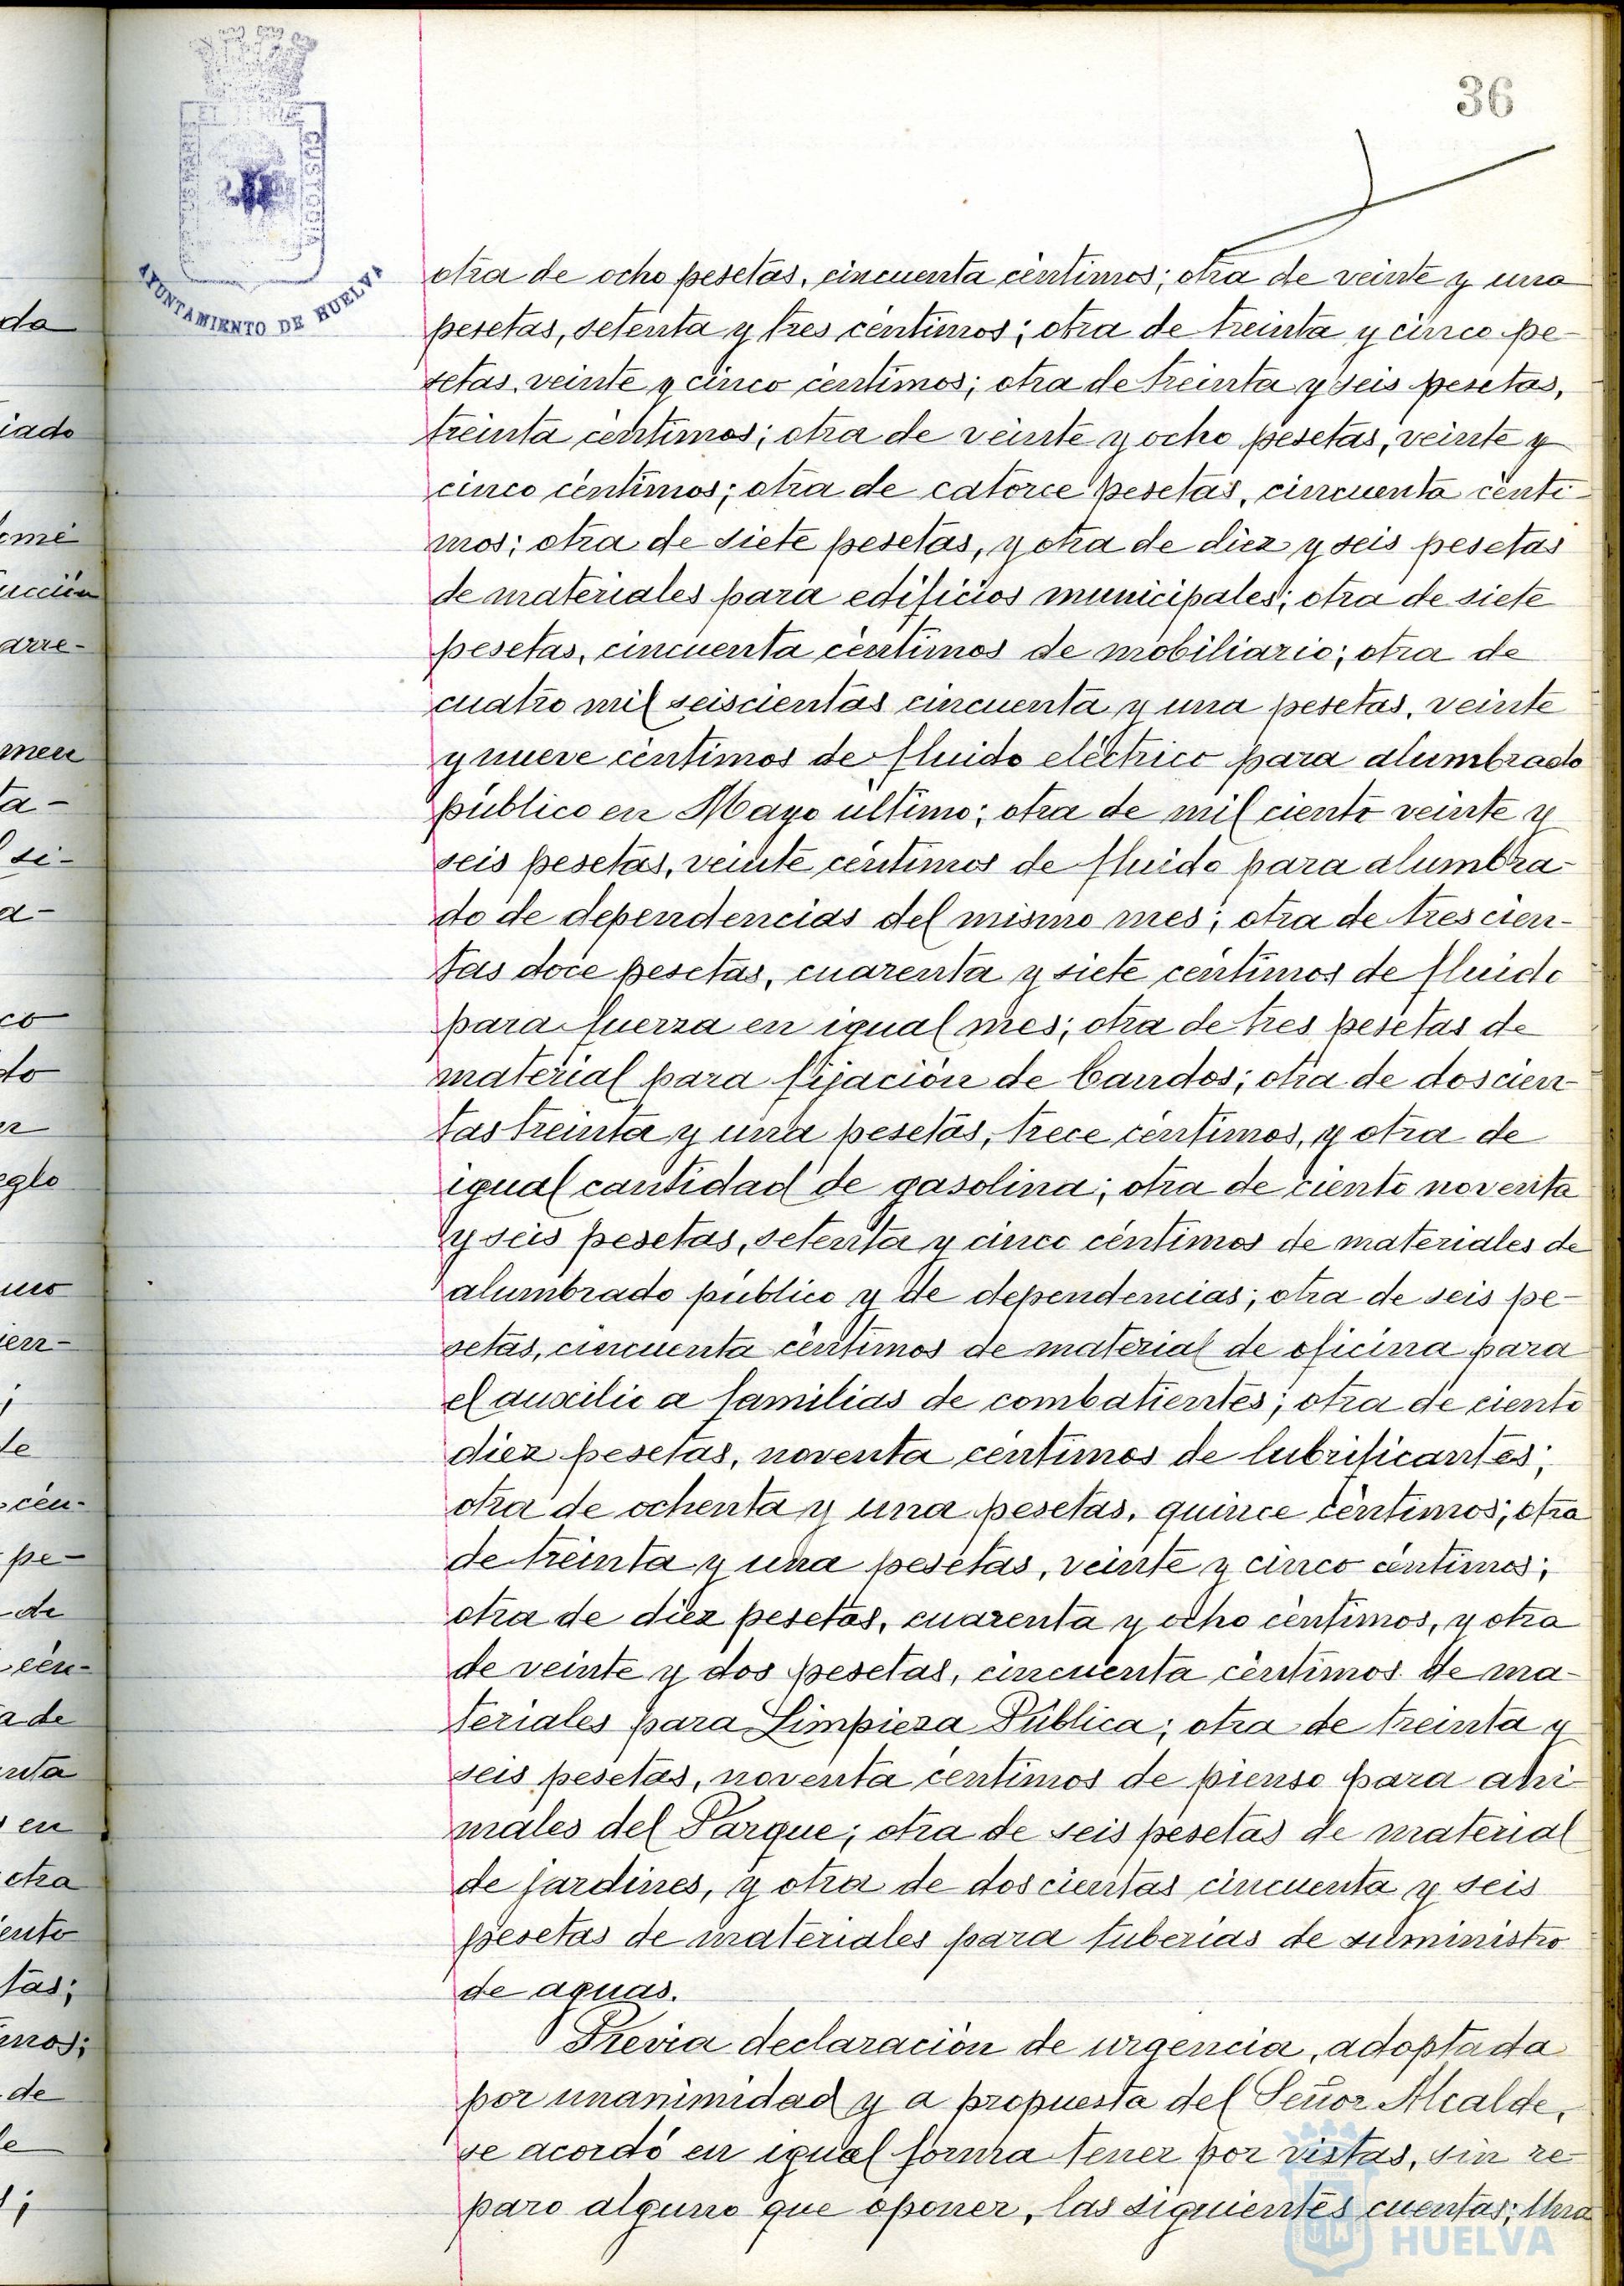 36
AYUNTAMIENTO DE HUELVA
otra de ocho pesetas, cincuenta céntimos; otra de veinte y una
pesetas, setenta y tres céntimos; otra de treinta y cinco pe-
setas, veinte y cinco céntimos; otra de treinta y seis pesetas,
treinta céntimos; otra de veinte y ocho pesetas, veinte y
cinco céntimos; otra de catorce pesetas, cincuenta cénti-
mos; otra de siete pesetas, y otra de diez y seis pesetas
de materiales para edificios municipales; otra de siete
pesetas, cincuenta céntimos de mobiliario; otra de
cuatro mil seiscientas cincuenta y una pesetas, veinte
y nueve céntimos de fluido eléctrico para alumbrado
público en Mayo último; otra de mil ciento veinte y
seis pesetas, veinte céntimos de fluido para alumbra-
do de dependencias del mismo mes; otra de trescien-
tas doce pesetas, cuarenta y siete céntimos de fluido
para fuerza en igual mes; otra de tres pesetas de
material para fijación de bandos; otra de doscien-
tas treinta y una pesetas, trece céntimos, y otra de
igual cantidad de gasolina; otra de ciento noventa
y seis pesetas, setenta y cinco céntimos de materiales de
alumbrado público y de dependencias; otra de seis pe-
setas, cincuenta céntimos de material de oficina para
el auxilio a familias de combatientes; otra de ciento
diez pesetas, noventa céntimos de lubrificantes;
otra de ochenta y una pesetas, quince céntimos; otra
de treinta y una pesetas, veinte y cinco céntimos;
otra de diez pesetas, cuarenta y ocho céntimos, y otra
de veinte y dos pesetas, cincuenta céntimos de ma-
teriales para Limpieza Pública; otra de treinta y
seis pesetas, noventa céntimos de pienso para ani-
males del Parque; otra de seis pesetas de material
de jardines, y otra de doscientas cincuenta y seis
pesetas de materiales para tuberias de suministro
de aguas.
Previa declaración de urgencia, adoptada
por unanimidad y a propuesta del Señor Alcalde,
se acordó en igual forma tener por vistas, sin re-
paro alguno que oponer, las siguientes cuentas; Una
HUELVA